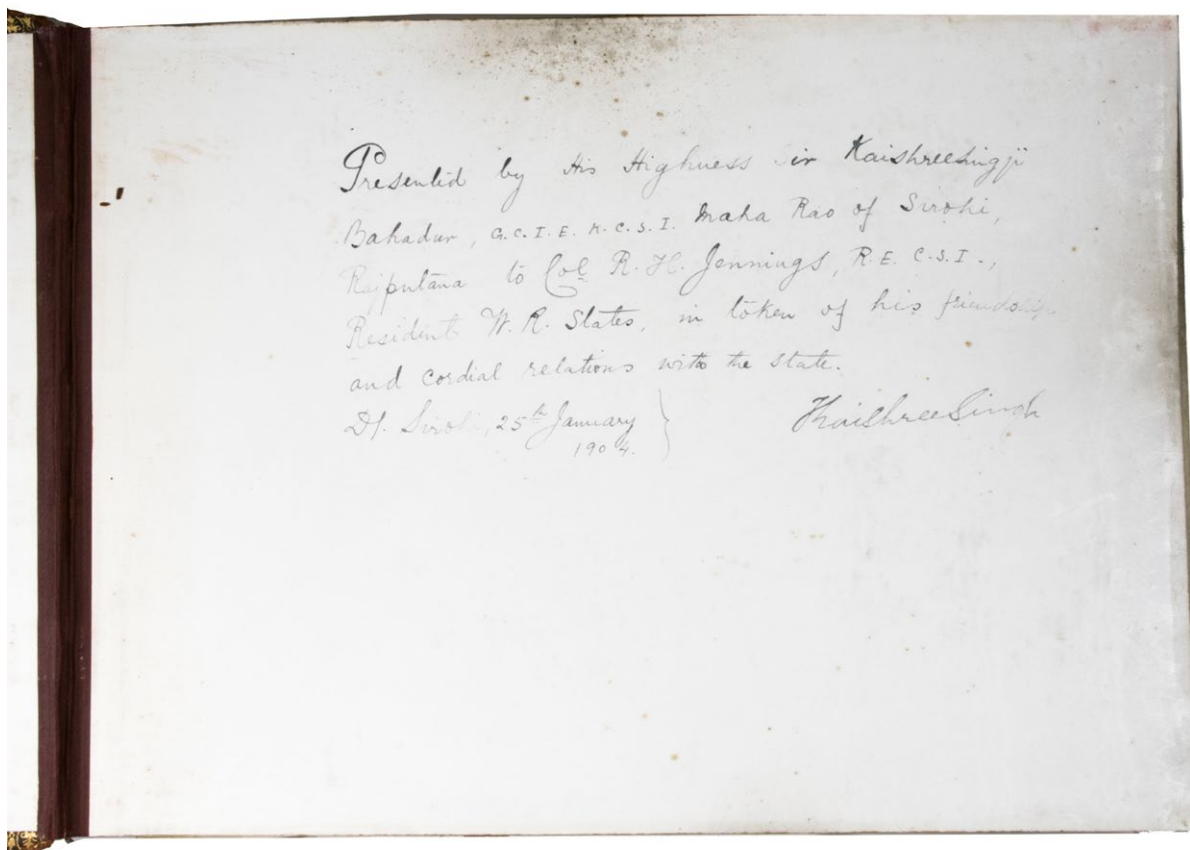 Presented by His Highness Sir Kaishreesingji
Bahadur, G.C.I.E. K.C.S.I. Maha Rao of Sirohi,
Rajputana to Col R. H. Jennings, R.E. C.S.I.,
Resident W. R. States, in token of his friendship
and cordial relations with the state.
Dt. Sirohi, 25th January
1904.
KaishreeSingh